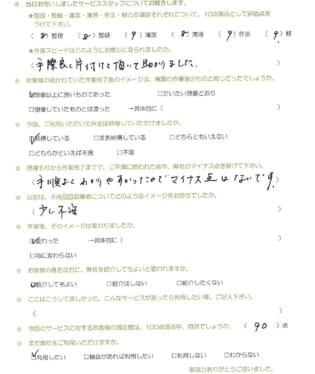 ☆ 当日お伺いしましたサービススタッフについてお聞きします。
★整理・整頓・清潔・清掃・作法・躾の6項目それぞれについて、10点満点として評価点をつけて下さい。
( 8 )整理 ( 8 )整頓 ( 9 )清潔 ( 8 )清掃 ( 9 )作法 ( 9 )躾
★作業スピードはどのように感じになられましたか。
(手際良く片付けて頂いて助かりました。
☆ お客様の描かれていた作業完了後のイメージは、実際の作業後のものと同じだったでしょうか。
☑想像以上に良いものであった □だいたい想像どおり
□想像していたものとは違った →具体的に(
☆ 今回、ご利用いただいた料金は納得していただけましたか。
☑納得している □まあ納得している □どちらともいえない
□どちらかといえば不満 □不満
☆ 見積もりから作業完了までで、ご不満に思われた点や、弊社のマイナス点を挙げて下さい。
(手順よくわかりやすかったのでマイナス点はないです。
☆ 以前は、不用品回収業者についてどのようなイメージをお持ちでしたか。
(少し不安 )
☆ 作業後、そのイメージは変わりましたか。
☑変わった →具体的に( )
□特に変わらない
☆ お客様の身近な方に、弊社を紹介してもよいと思われますか。
☑紹介してもよい □紹介はしない □紹介したくない
☆ ここはこうしてほしかった。こんなサービスがあったら利用したい等、ご記入下さい。
( )
☆ 今回のサービスに対するお客様の満足度は、100点満点中、何点でしょうか。( 90 )点
☆ また弊社をご利用いただけますか。
☑利用したい □機会があれば利用したい □利用しない □わからない
ご協力ありがとうございました。